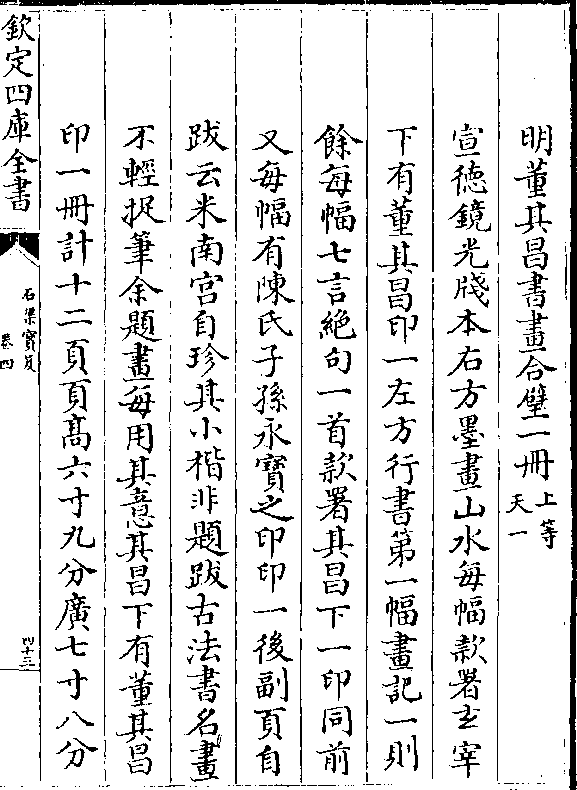 明董其昌書畫合璧一冊上等
天一
宣徳鏡光牋本右方墨畫山水每幅款署玄宰
下有董其昌印一左方行書第一幅畫記一則
餘每幅七言絶句一首款署其昌下一印同前
又每幅有陳氏子孫永寶之印印一後副頁自
跋云米南宫自珍其小楷非題跋古法書名畫
不輕捉筆余題畫每用其意其昌下有董其昌
印一冊計十二頁頁髙六寸九分廣七寸八分
欽定四庫全書
石渠寳笈
卷四
四十三